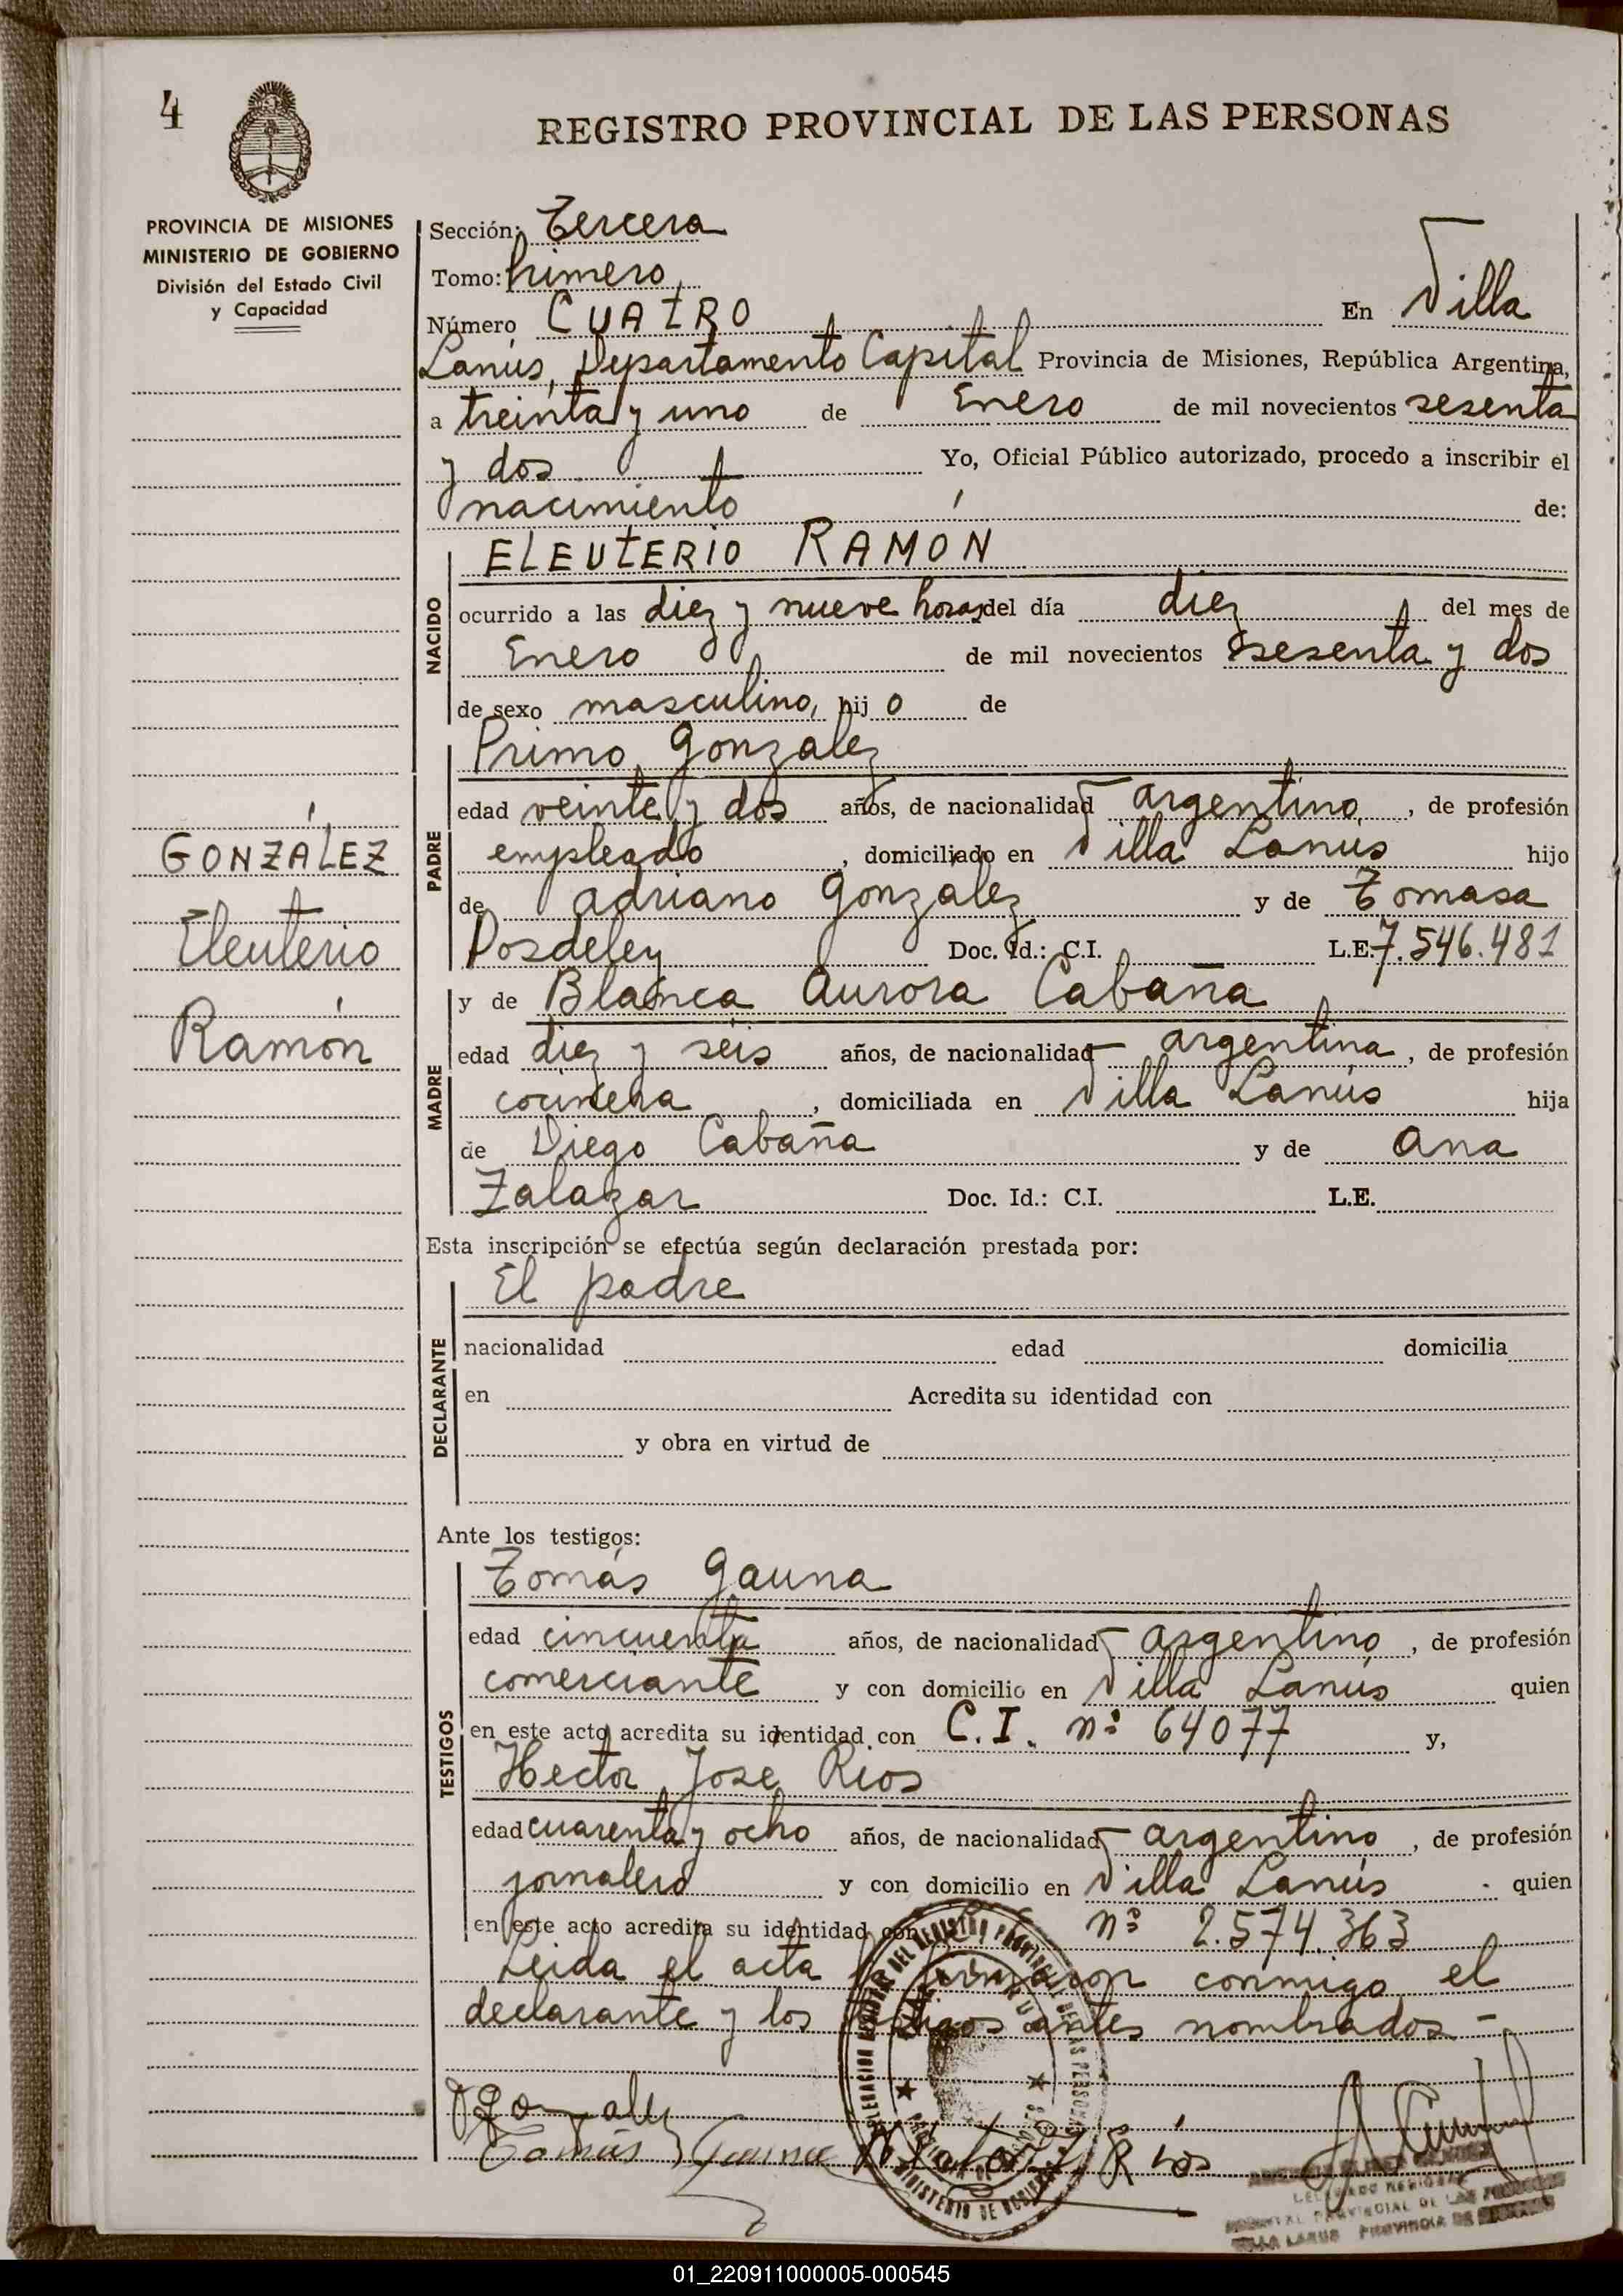 4
REGISTRO PROVINCIAL DE LAS PERSONAS
PROVINCIA DE MISIONES
MINISTERIO DE GOBIERNO
División del Estado Civil
y Capacidad
Sección: Tercera
Tomo: Primero
Número CUATRO En Villa
Lanús, Departamento Capital Provincia de Misiones, República Argentina,
a treinta y uno de Enero de mil novecientos sesenta
y dos Yo, Oficial Público autorizado, procedo a inscribir el
nacimiento de:
NACIDO
ELEUTERIO RAMÓN
ocurrido a las diez y nueve horas del día diez del mes de
Enero de mil novecientos sesenta y dos
de sexo masculino, hijo de
PADRE
Primo Gonzalez
edad veinte y dos años, de nacionalidad argentino, de profesión
empleado, domiciliado en Villa Lanus hijo
de Adriano Gonzalez y de Tomasa
Posdeley Doc. Id.: C.I. L.E. 7.546.481
GONZÁLEZ
Eleuterio
Ramón
MADRE
y de Blanca Aurora Cabaña
edad diez y seis años, de nacionalidad argentina, de profesión
cocinera, domiciliada en Villa Lanús hija
de Diego Cabaña y de Ana
Zalazar Doc. Id.: C.I. L.E.
Esta inscripción se efectúa según declaración prestada por:
DECLARANTE
El padre
nacionalidad edad domicilia
en Acredita su identidad con
y obra en virtud de
Ante los testigos:
TESTIGOS
Tomás Gauna
edad cincuenta años, de nacionalidad argentino, de profesión
comerciante y con domicilio en Villa Lanús quien
en este acto acredita su identidad con C.I. nº 64077 y,
Hector Jose Rios
edad cuarenta y ocho años, de nacionalidad argentino, de profesión
jornalero y con domicilio en Villa Lanús quien
en este acto acredita su identidad con nº 2.574.363
Leida el acta firmaron conmigo el
declarante y los testigos antes nombrados -
Tomás Gauna
Ríos
VILLA LANUS PROVINCIA DE MISIONES
01_220911000005-000545